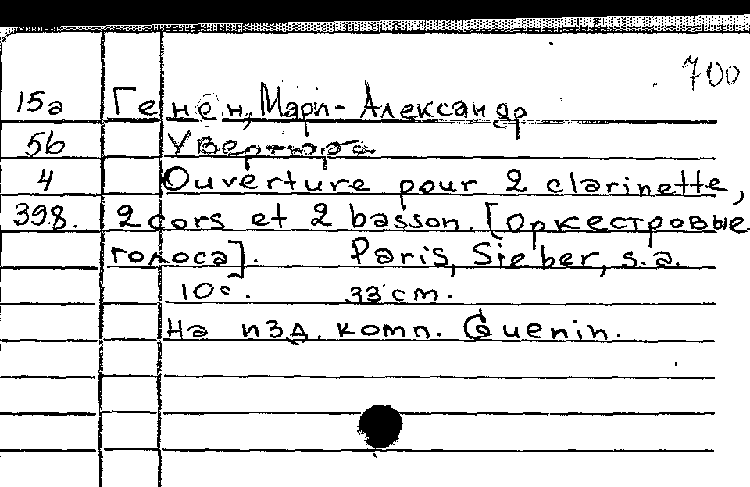 700
15а Генен, Мари-Александр
5б Увертюра
4 Ouverture pour 2 clarinette,
398. 2 cors et 2 basson. [Оркестровые
голоса]. Paris, Sieber, s.a.
10с. 33 cm.
На изд. комп. Guenin.